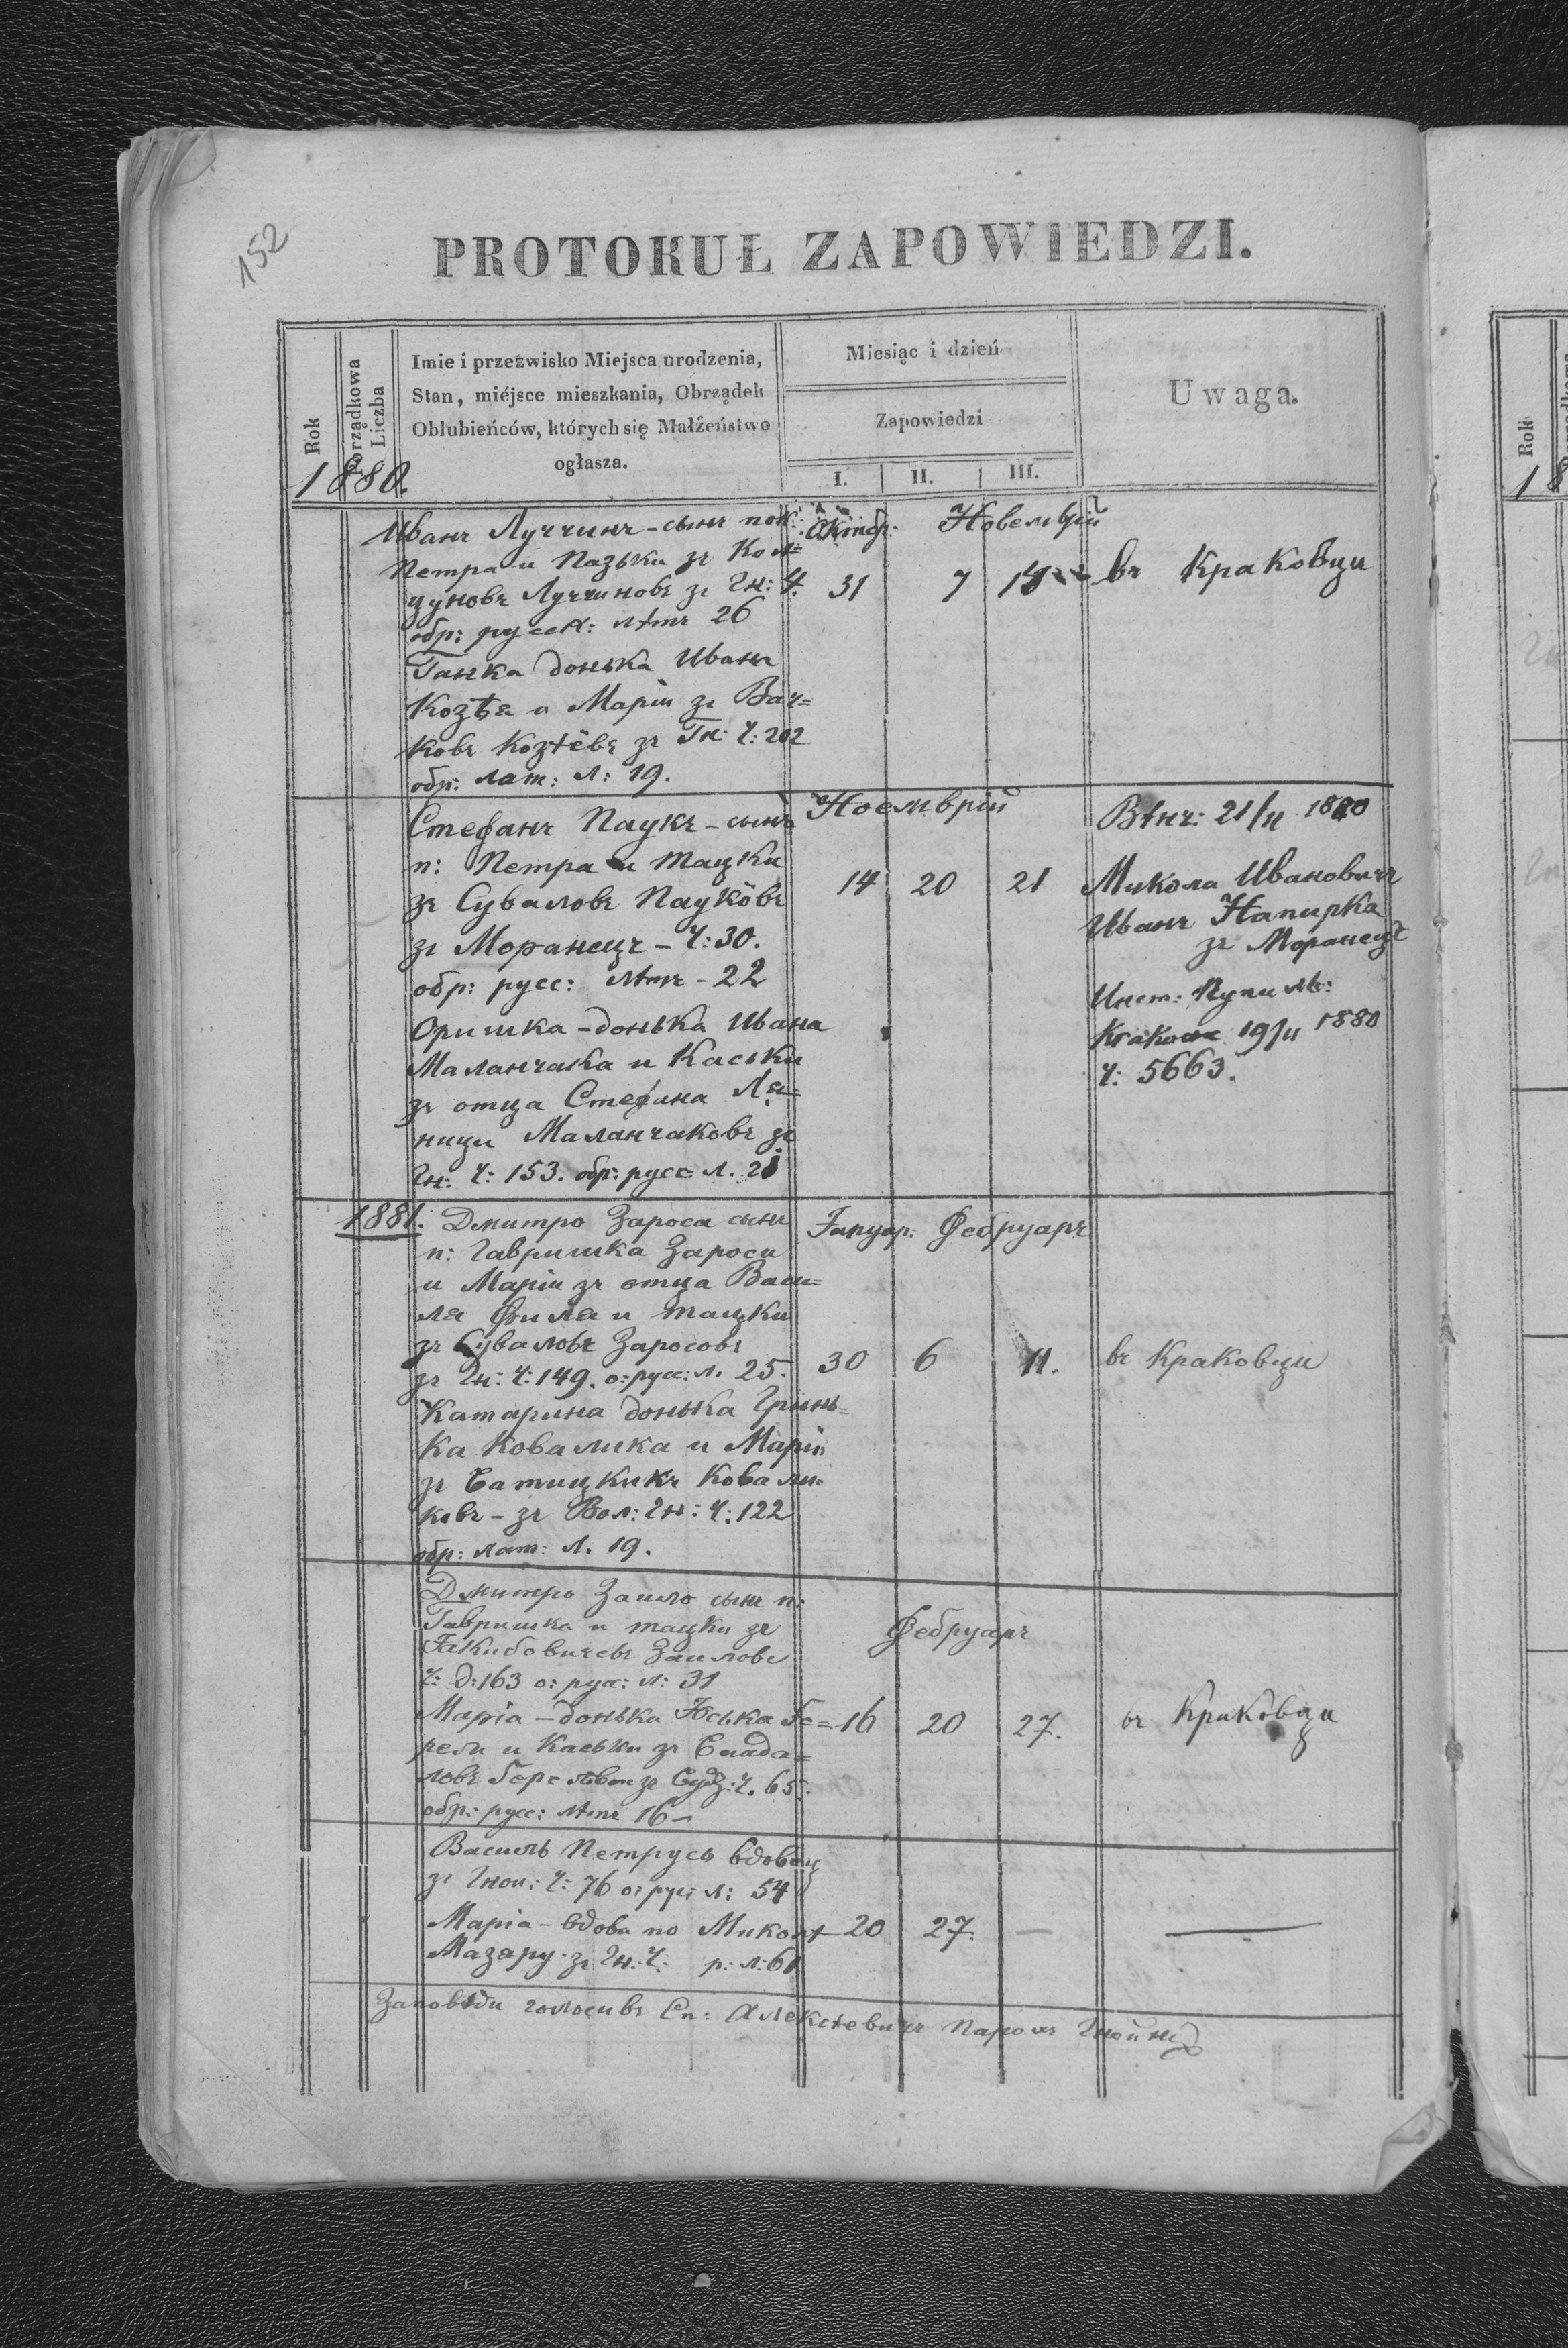 152
PROTOKUŁ ZAPOWIEDZI.
Rok
Porządkowa Liczba
Imie i przezwisko Miejsca urodzenia,
Stan, miéjsce mieszkania, Obrządek
Oblubieńców, których się Małżeństwo
ogłasza.
Miesiąc i dzień
Zapowiedzi
I. II. III.
Uwaga.
1880.
Иванъ Луччинъ - сынъ пок:
Петра и Пазьки зъ Кол=
цуновъ Луччиновъ зъ Гн: Ч.
обр: русск: лѣтъ 26
Ганка донька Ивана
Козѣя и Маріи зъ Вач=
ковъ Козѣёвъ зъ Гн: Ч: 202
обр: лат: л: 19.
Октобр: Новемврій
31 7 14
въ Краковци
Стефанъ Паукъ - сынъ
п: Петра и Тацки
зъ Суваловъ Паукôвъ
зъ Моранецъ - Ч: 30.
обр: русс: лѣтъ - 22
Оришка - донька Ивана
Маланчака и Каськи
зъ отца Стефана Ля=
ници Маланчаковъ зъ
Гн: Ч: 153. обр: русс л. 21
Ноемврій
14 20 21
Вѣнч: 21/11 1880
Микола Ивановичъ
Иванъ Напирка
зъ Моранецъ
Инст: Пупиль:
19/11 1880
Ч: 5663.
1881. Дмитро Зароса сынъ
п: Гавришка Заросы
и Маріи зъ отца Васи=
ля Филя и Тацки
зъ Суваловъ Заросовъ
зъ Гн: Ч: 149. о: русс: л. 25.
Катарина донька Гринь=
ка Ковалика и Маріи
зъ Батицкихъ Ковали=
ковъ - зъ Вол: Гн: Ч: 122
обр: лат: л. 19.
Януар: Фебруаръ
30 6 11.
въ Краковци
Дмитро Заило сынъ п:
Гавришка и Тацки зъ
Якибовичевъ Заиловъ
Ч: д: 163 о: русс: л: 31
Марія - донька Юська Бе=
рели и Каськи зъ
зъ Ч. 65.
обр: русс: лѣтъ 16 -
Фебруаръ
16 20 27.
въ Краковци
Василь Петрусь вдовец
зъ Гнои: Ч: 76 о: рус: л: 54
Марія - вдова по Миколѣ
Мазару зъ Гн: Ч: р: л: 61
20 27. —
Заповѣди голосивъ Сп: Алексѣевичъ Парохъ